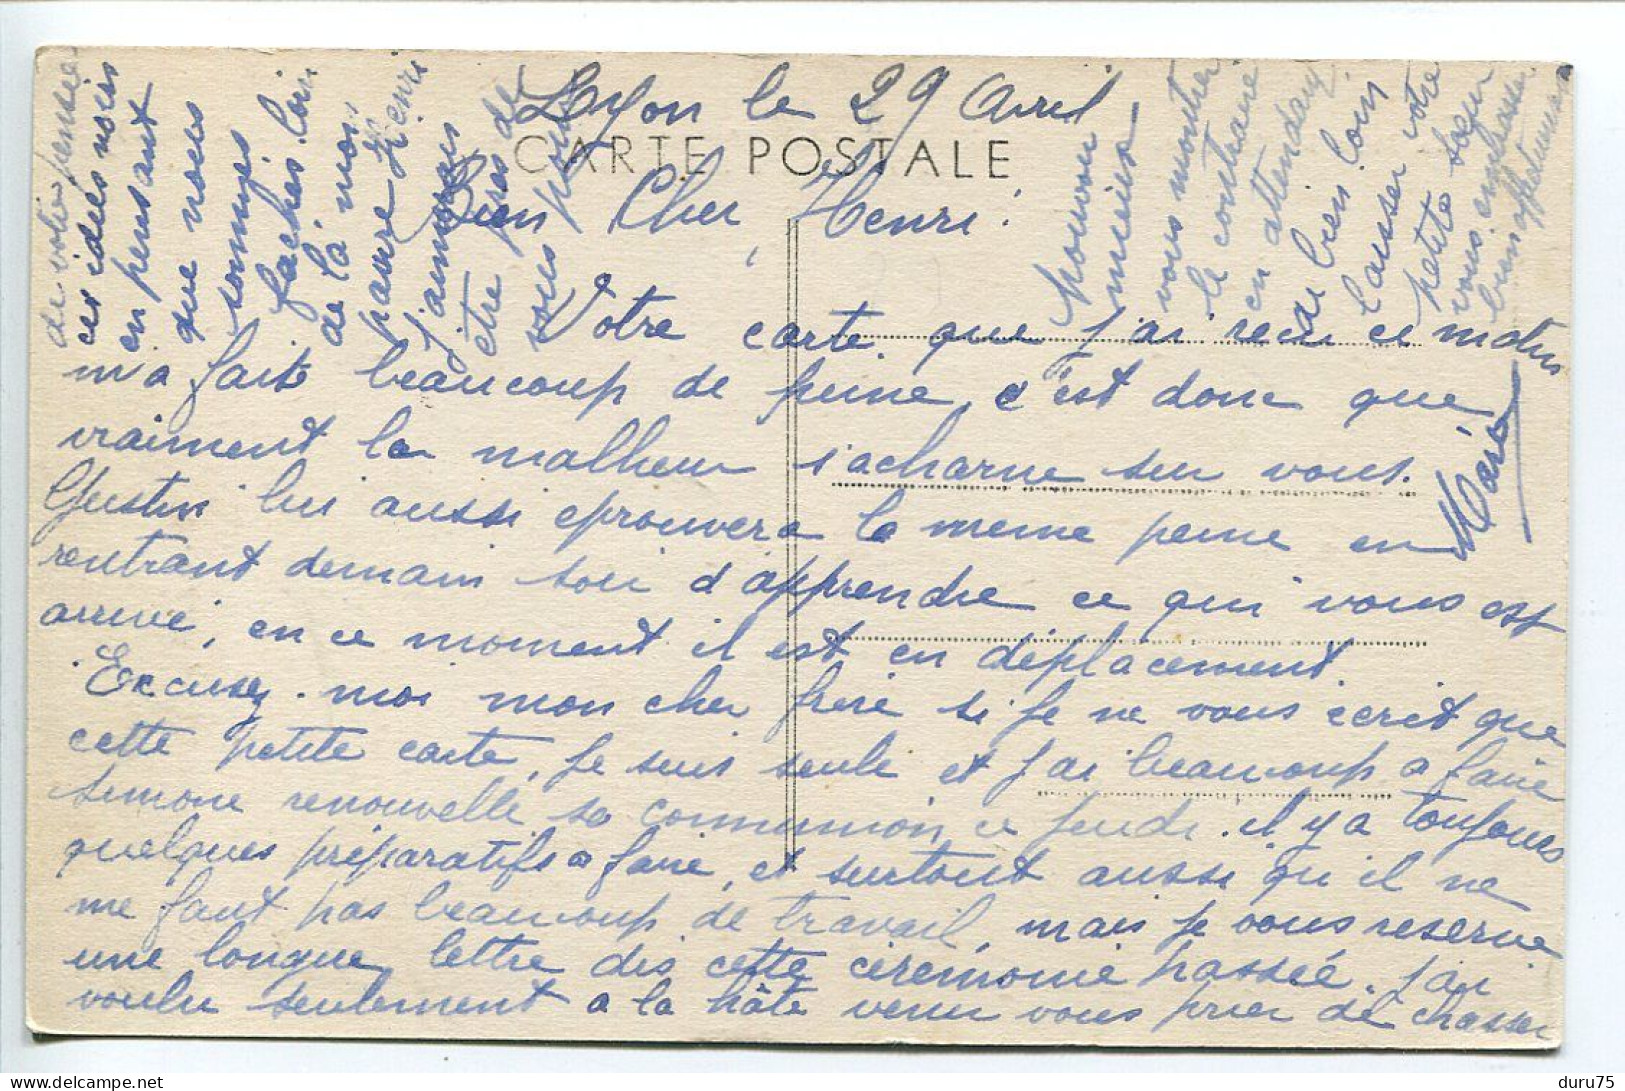 Lyon le 29 Avril
CARTE POSTALE
Bien Cher Henri !
Votre carte que j'ai recu ce matin
m'a faite beaucoup de peine, c'est donc que
vraiment le malheur s'acharne sur vous.
Gustin lui aussi eprouvera la meme peine en
rentrant demain soir d'apprendre ce qui vous est
arrivé, en ce moment il est en déplacement.
Excusez-moi mon cher frère si je ne vous ecrit que
cette petite carte, je suis seule et j'ai beaucoup a faire
Simone renouvelle sa communion ce jeudi. il y a toujours
quelques préparatifs a faire, et surtout aussi qu'il ne
me faut pas beaucoup de travail, mais je vous reserve
une longue lettre dis cette cérémonie passée. j'ai
voulu seulement a la hâte venir vous prier de chasser
de votre pensée
ces idées noires
en pensant
que nous
sommes
fachés. loin
de là mon
pauvre Henri
j'aimerais
être près de
vous pour
pouvoir
mieux
vous montrer
le contraire
en attendant
de bien loin
laisser votre
petite soeur
vous embrasser
bien affectueusement
duru75